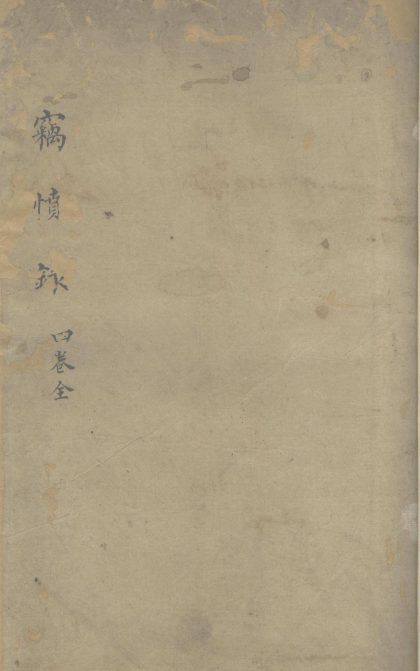 竊憤錄
四卷全